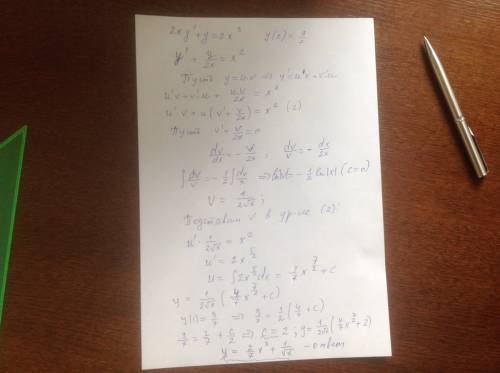 2xy' + y = 2x³ y(1) = 9/7
y' + y/2x = x²
Пусть y = u·v ⇒ y' = u'v + v'u
u'v + v'·u + u·v/2x = x²
u'·v + u(v' + v/2x) = x² (2)
Пусть v' + v/2x = 0
dv/dx = - v/2x ; dv/v = - dx/2x
∫dv/v = - 1/2 ∫dx/x ⇒ - 1/2 ln|x| (c=0)
v = 1/2√x ;
Подставим v в ур-ие (2):
u'· 1/2√x = x²
u' = 2x^5/2
u = ∫2x^5/2 dx = 4/7 x^7/2 + c
y = 1/2√x (4/7 x^7/2 + c)
y(1) = 9/7 ⇒ 9/7 = 1/2 (4/7 + c)
9/7 = 2/7 + c/2 ⇒ c = 2 ; y = 1/2√x (4/7 x^7/2 + 2)
y = 2/7 x³ + 1/√x - ответ